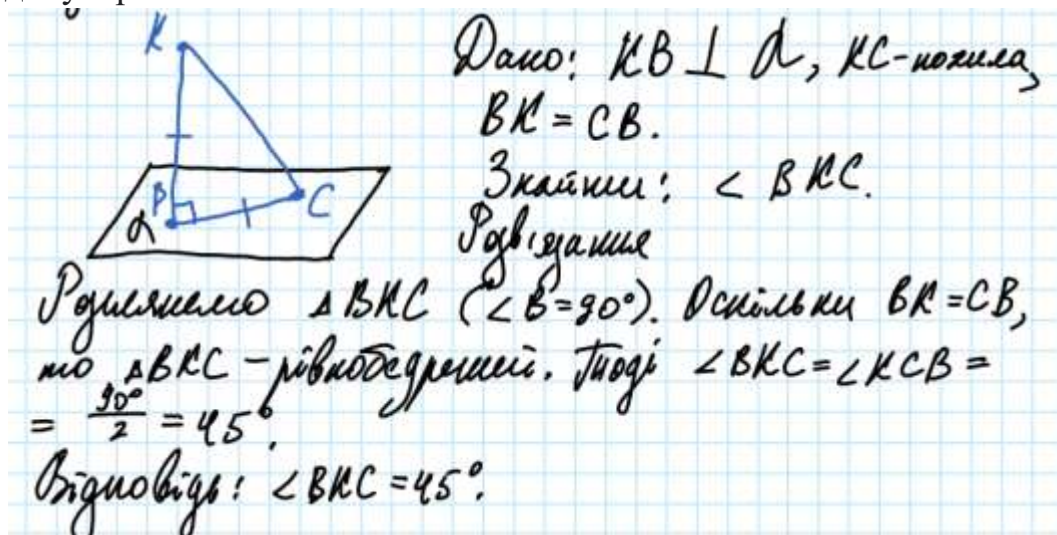 K
B
C
α
Дано: KB ⊥ α, KC-похила,
BK = CB.
Знайти: ∠ BKC.
Розв'язання
Розглянемо △BKC (∠B=90°). Оскільки BK=CB,
то △BKC – рівнобедрений. Тоді ∠BKC=∠KCB=
= 90°/2 = 45°.
Відповідь: ∠BKC=45°.